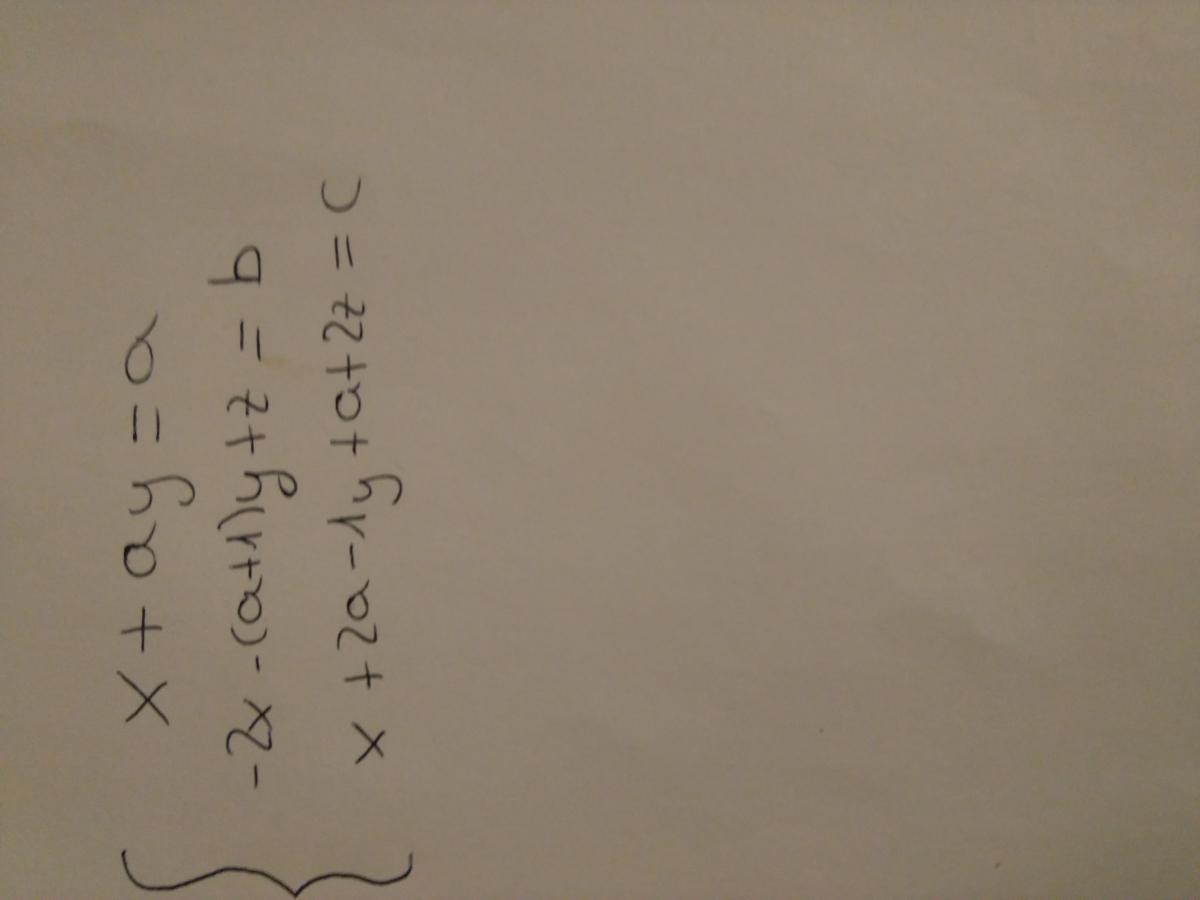 x + ay = a
-2x -(a+1)y+z = b
x +2a-1y +a+2z = c